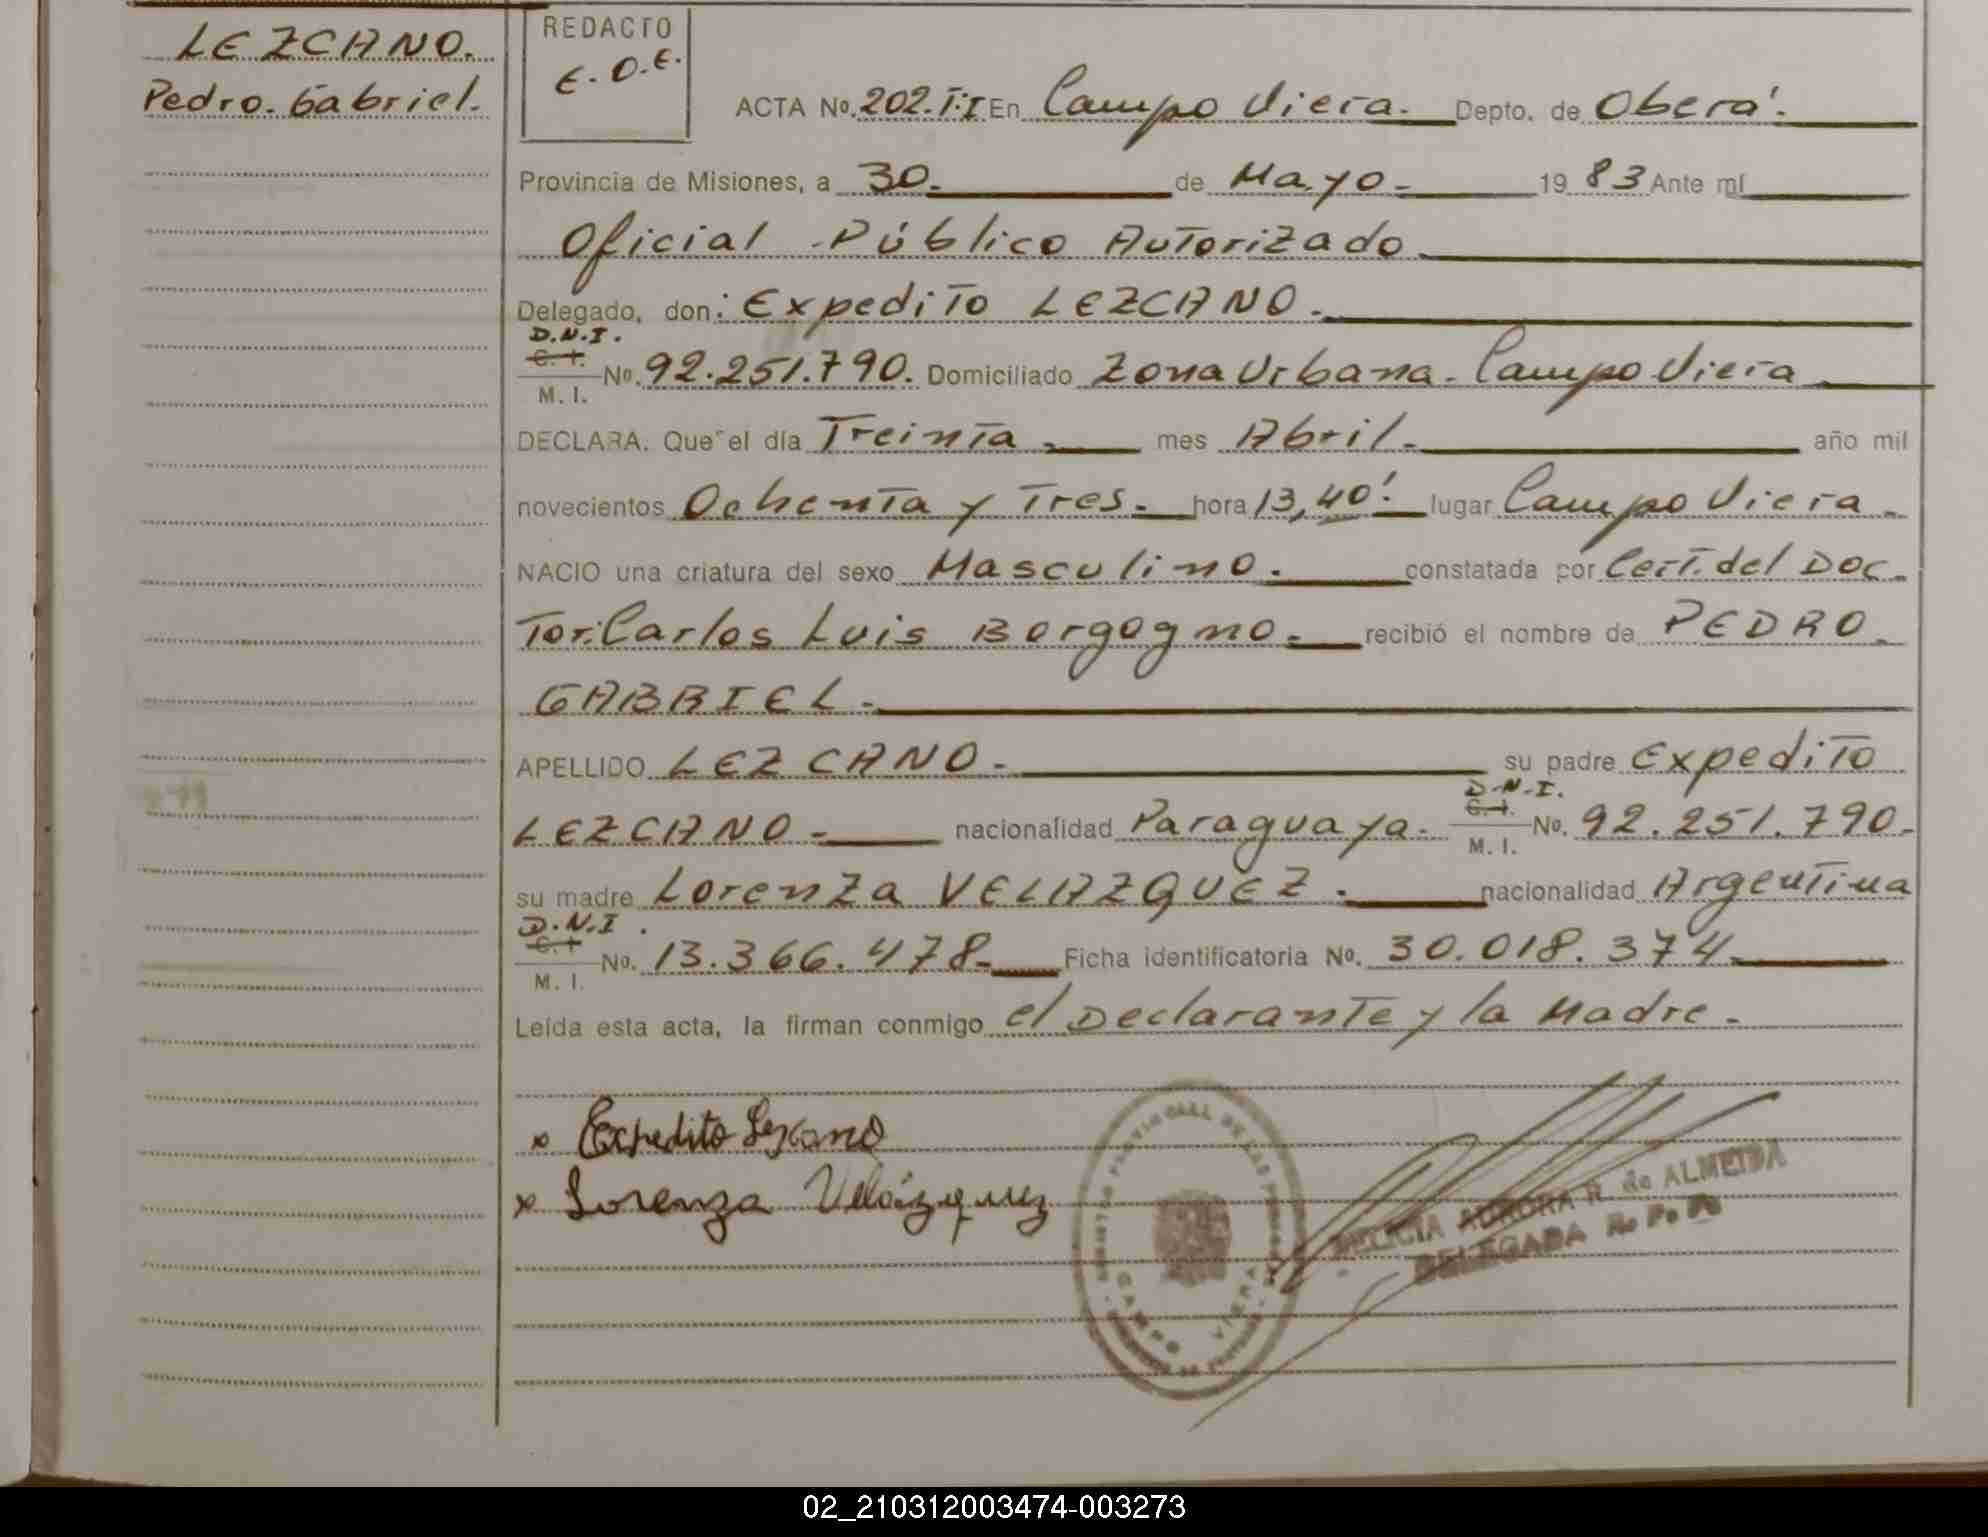 LEZCANO.
Pedro. Gabriel.
REDACTO
E. O. E.
ACTA No. 202. T:I En Campo Viera. Depto. de Oberá.
Provincia de Misiones, a 30. de Mayo 1983 Ante mí
Oficial Público Autorizado
Delegado, don: Expedito LEZCANO.
D.N.I.
C. I.
No. 92.251.790. Domiciliado Zona Urbana. Campo Viera
M. I.
DECLARA. Que el día Treinta mes Abril. año mil
novecientos Ochenta y Tres. hora 13,40! lugar Campo Viera.
NACIO una criatura del sexo Masculino. constatada por Cert. del Doc
Tor: Carlos Luis Borgogno. recibió el nombre de PEDRO
GABRIEL.
APELLIDO LEZCANO. su padre Expedito
D.N.I.
C. I.
LEZCANO. nacionalidad Paraguaya. No. 92.251.790.
M. I.
su madre Lorenza VELAZQUEZ. nacionalidad Argentina
D.N.I.
C. I
No. 13.366.478 Ficha identificatoria No. 30.018.374
M. I.
Leída esta acta, la firman conmigo el Declarante y la Madre.
x Expedito Lezcano
x Lorenza Velázquez
CAMPO VIERA
AURORA R. de ALMEIDA
DELEGADA R. P. P.
02_210312003474-003273